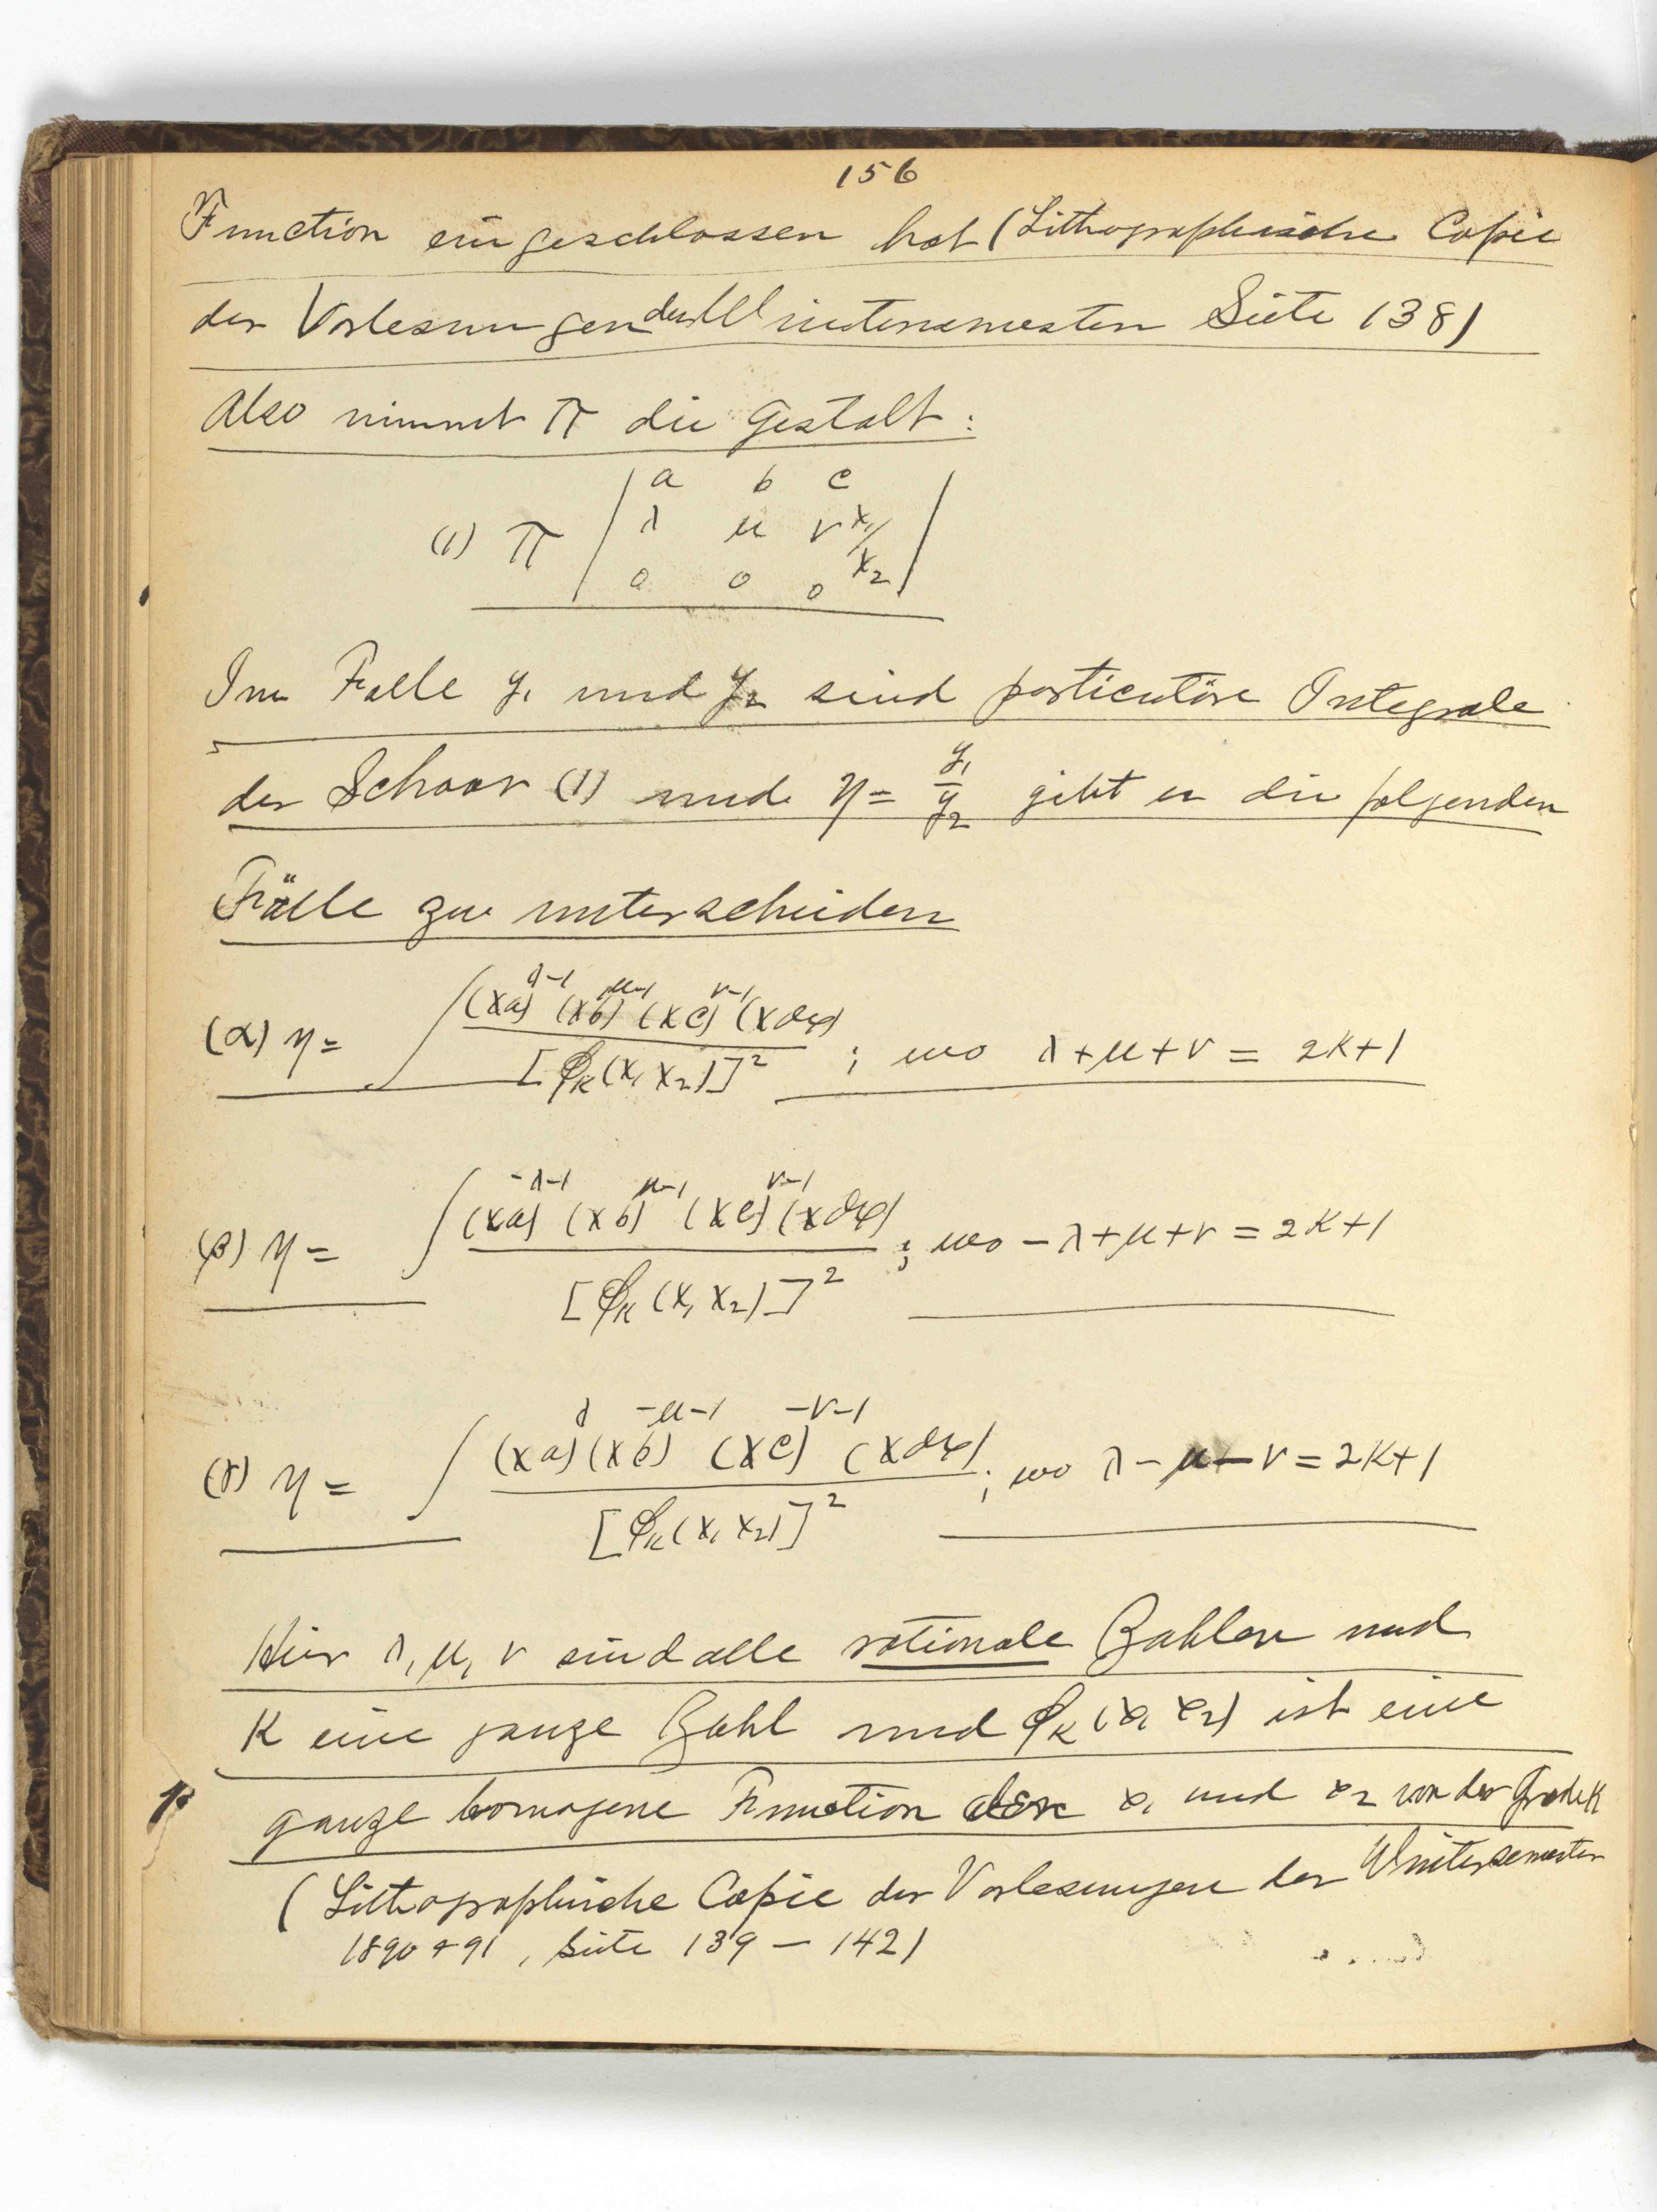 156
Function eingeschlossen hat (Lithographische Copie
der Vorlesungen des Wintersemesters Seite 138)
Also nimmt Π die Gestalt:
a b c
(1) Π | λ μ ν x₁/x₂ |
0 0 0
Im Falle y₁ und y₂ sind particuläre Integrale
der Schaar (1) und η = y₁/y₂ gibt es die folgenden
Fälle zu unterscheiden
(α) η = ∫ (xa)^{λ-1} (xb)^{μ-1} (xc)^{ν-1} (xdx) / [φ_K(x₁ x₂)]² ; wo λ+μ+ν = 2K+1
(β) η = ∫ (xa)^{-λ-1} (xb)^{μ-1} (xc)^{ν-1} (xdx) / [φ_K(x₁ x₂)]² ; wo -λ+μ+ν = 2K+1
(γ) η = ∫ (xa)^{λ} (xb)^{-μ-1} (xc)^{-ν-1} (xdx) / [φ_K(x₁ x₂)]² ; wo λ-μ-ν = 2K+1
Hier λ, μ, ν sind alle rationale Zahlen und
K eine ganze Zahl und φ_K(x₁ x₂) ist eine
ganze homogene Function x₁ und x₂ von der Grade K
(Lithographische Copie der Vorlesungen der Wintersemester
1890 & 91, Seite 139 – 142)